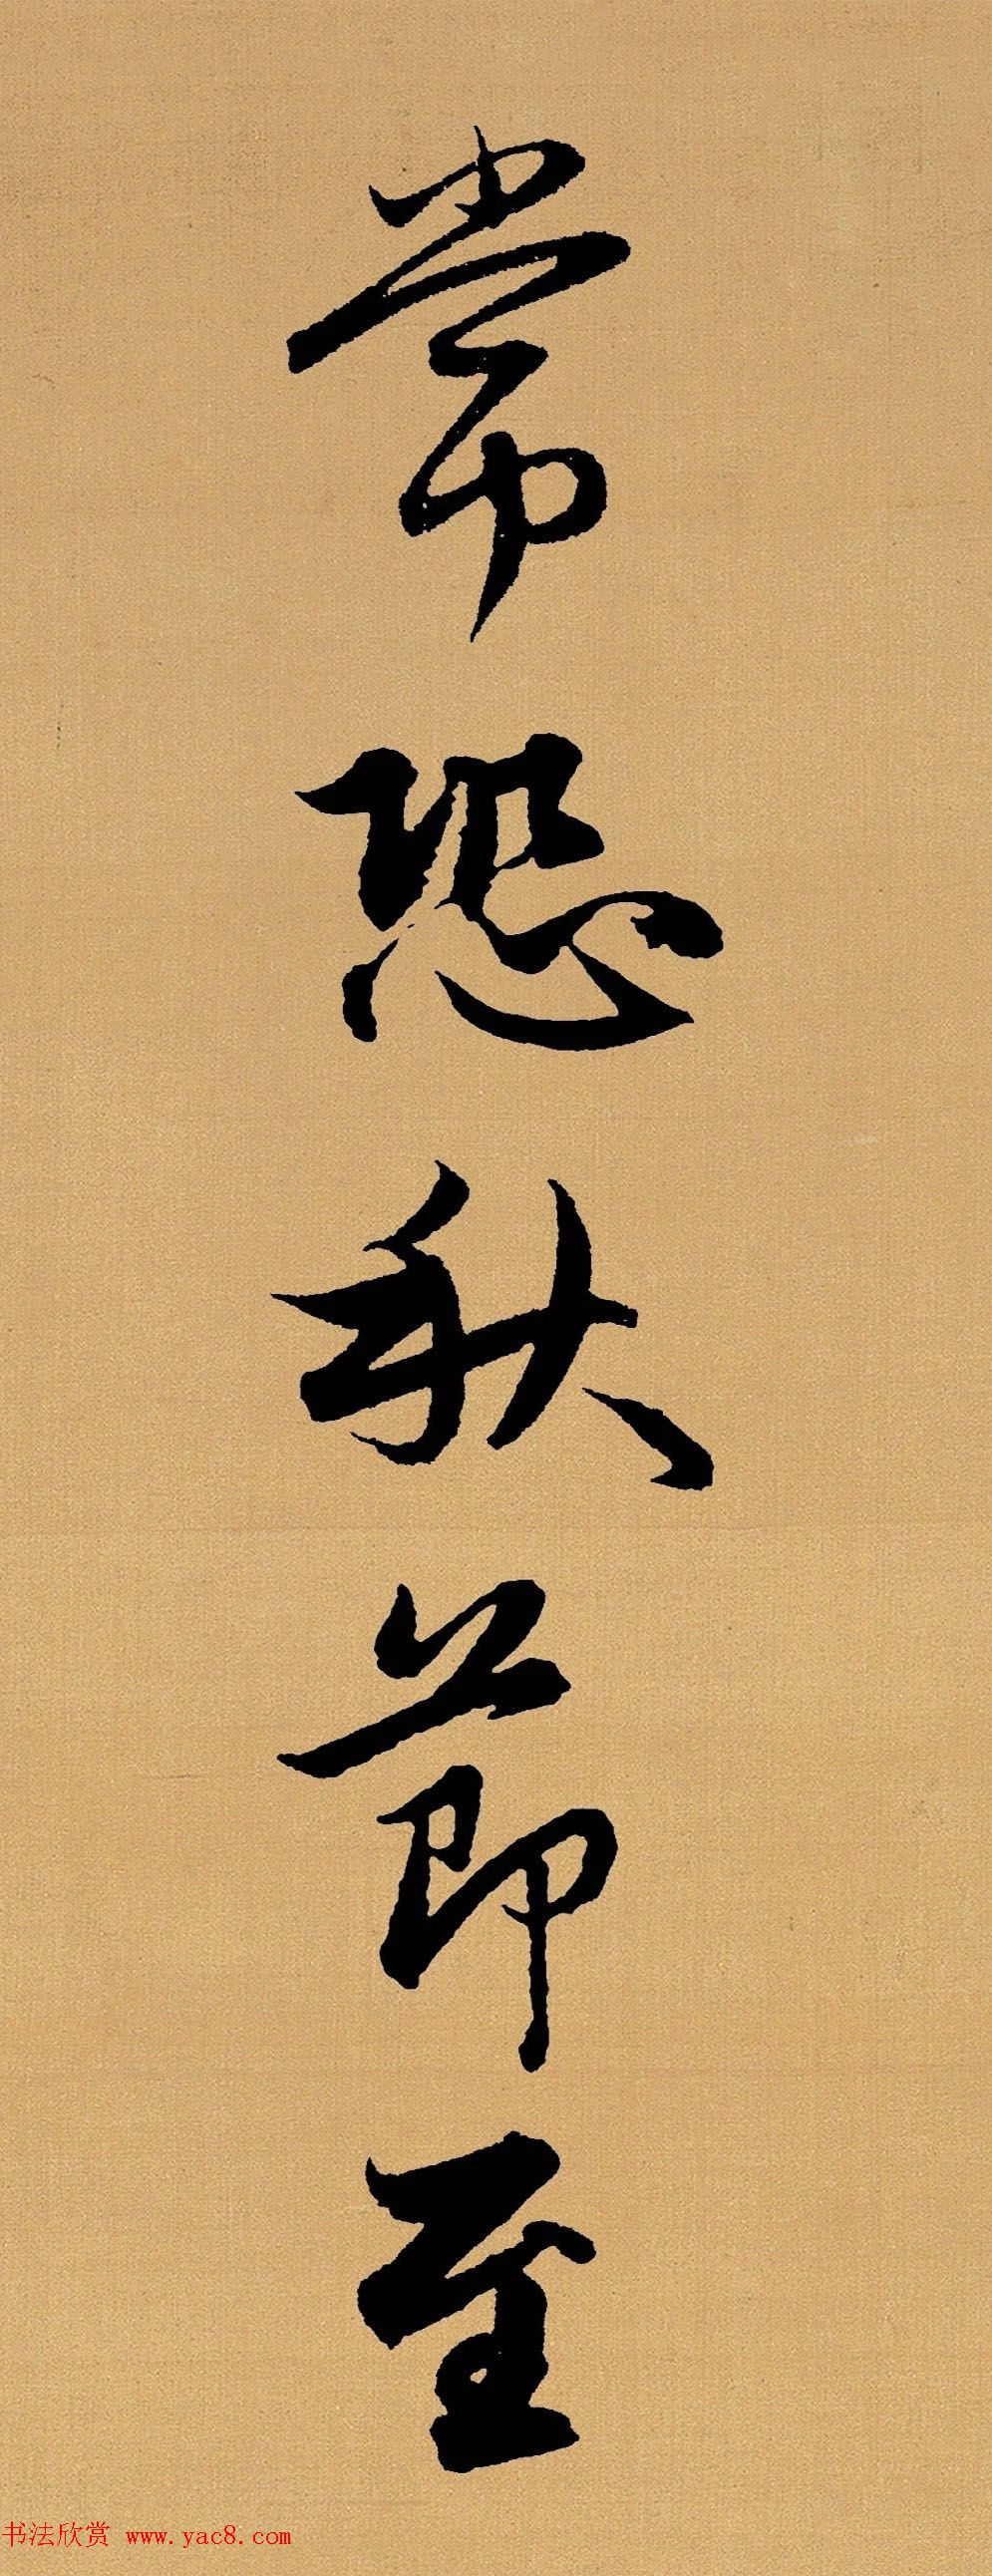 常恐秋節至
书法欣赏 www.yac8.com